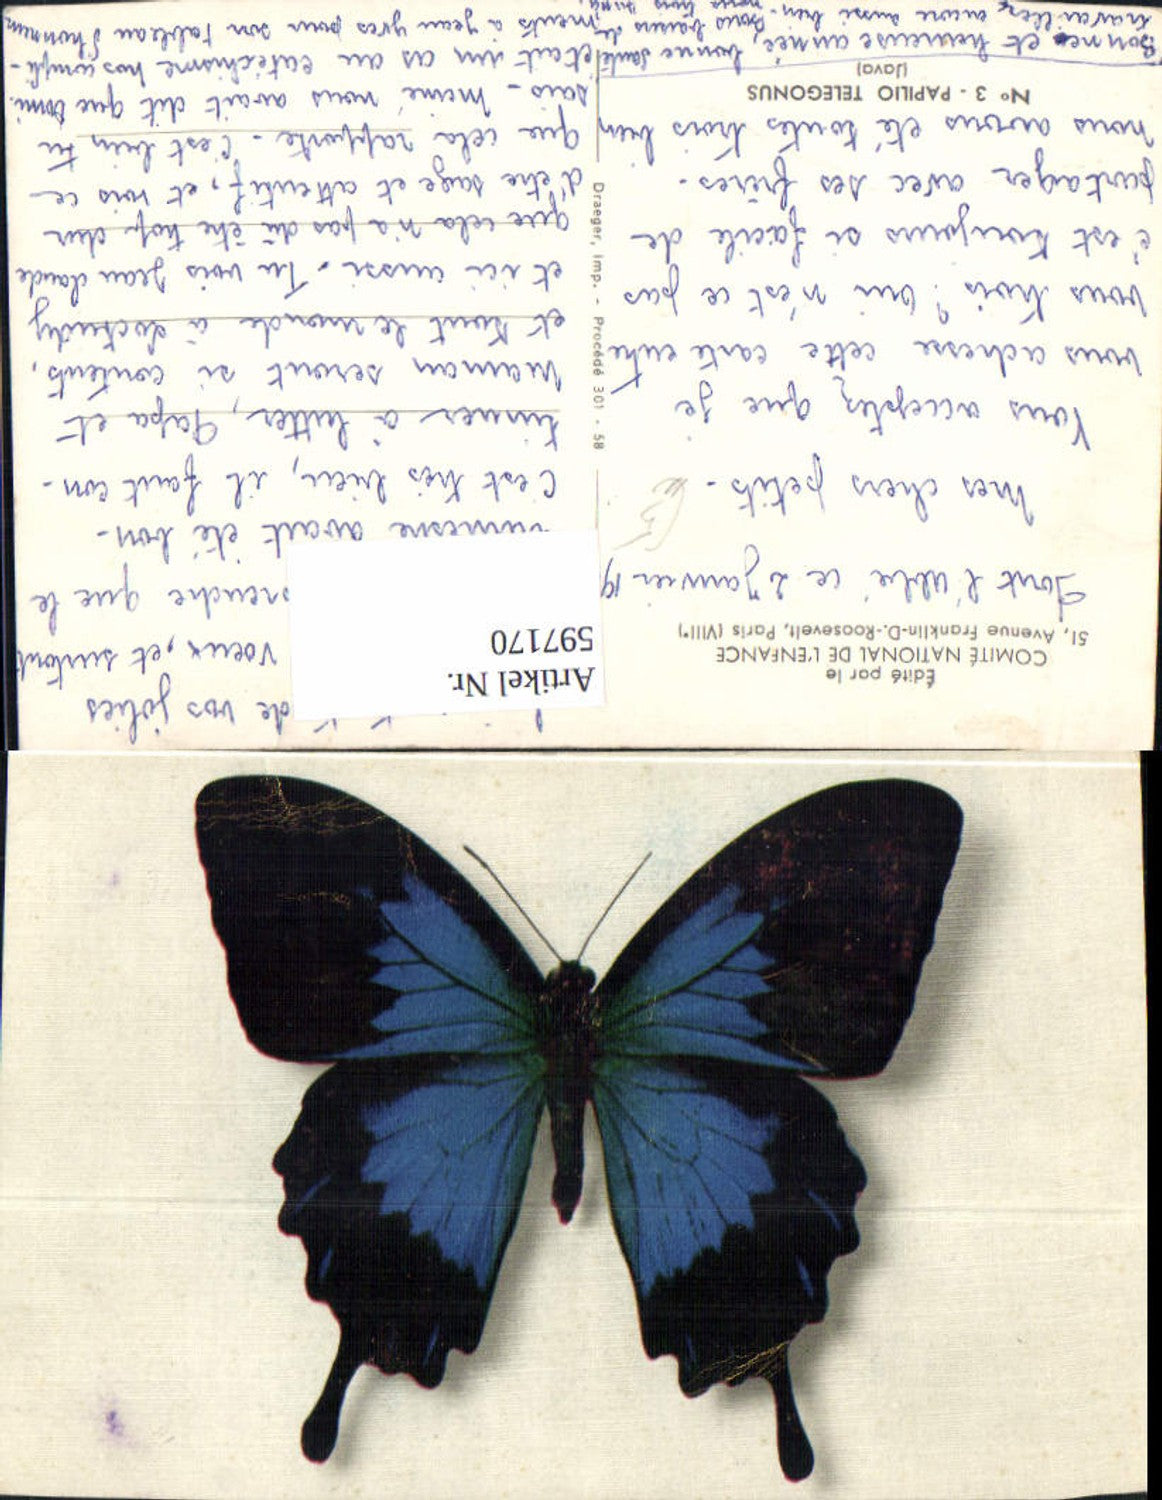 Édité par le
COMITÉ NATIONAL DE L'ENFANCE
51, Avenue Franklin-D.-Roosevelt, Paris (VIIIe)
Font l'Abbé ce 2 Janvier 19
Mes chers petits -
Vous acceptez que je
vous adresse cette carte entre
vous trois ? oui n'est ce pas
c'est toujours si facile de
partager avec ses frères.
nous avons été toutes trois bien
No 3 - PAPILIO TELEGONUS
(Java)
Draeger, imp. - Procédé 301 - 58
de vos jolies
voeux, et surtout
que le
avait été bon -
C'est très bien, il faut con-
tinuer à lutter, Papa et
maman seront si contents,
et tout le monde à
et ici aussi - Tu vois Jean Claude
que cela n'a pas dû être trop dur
d'être sage et attentif, et vois ce
que cela rapporte - C'est bien tu
sais - Mémé nous avait dit que
étiat un as au catéchisme nos compli-
ments à Jean Yves pour son tableau d'honneur
Bonne et heureuse année, bonne santé
travaillez encore aussi bien -
Artikel Nr.
597170